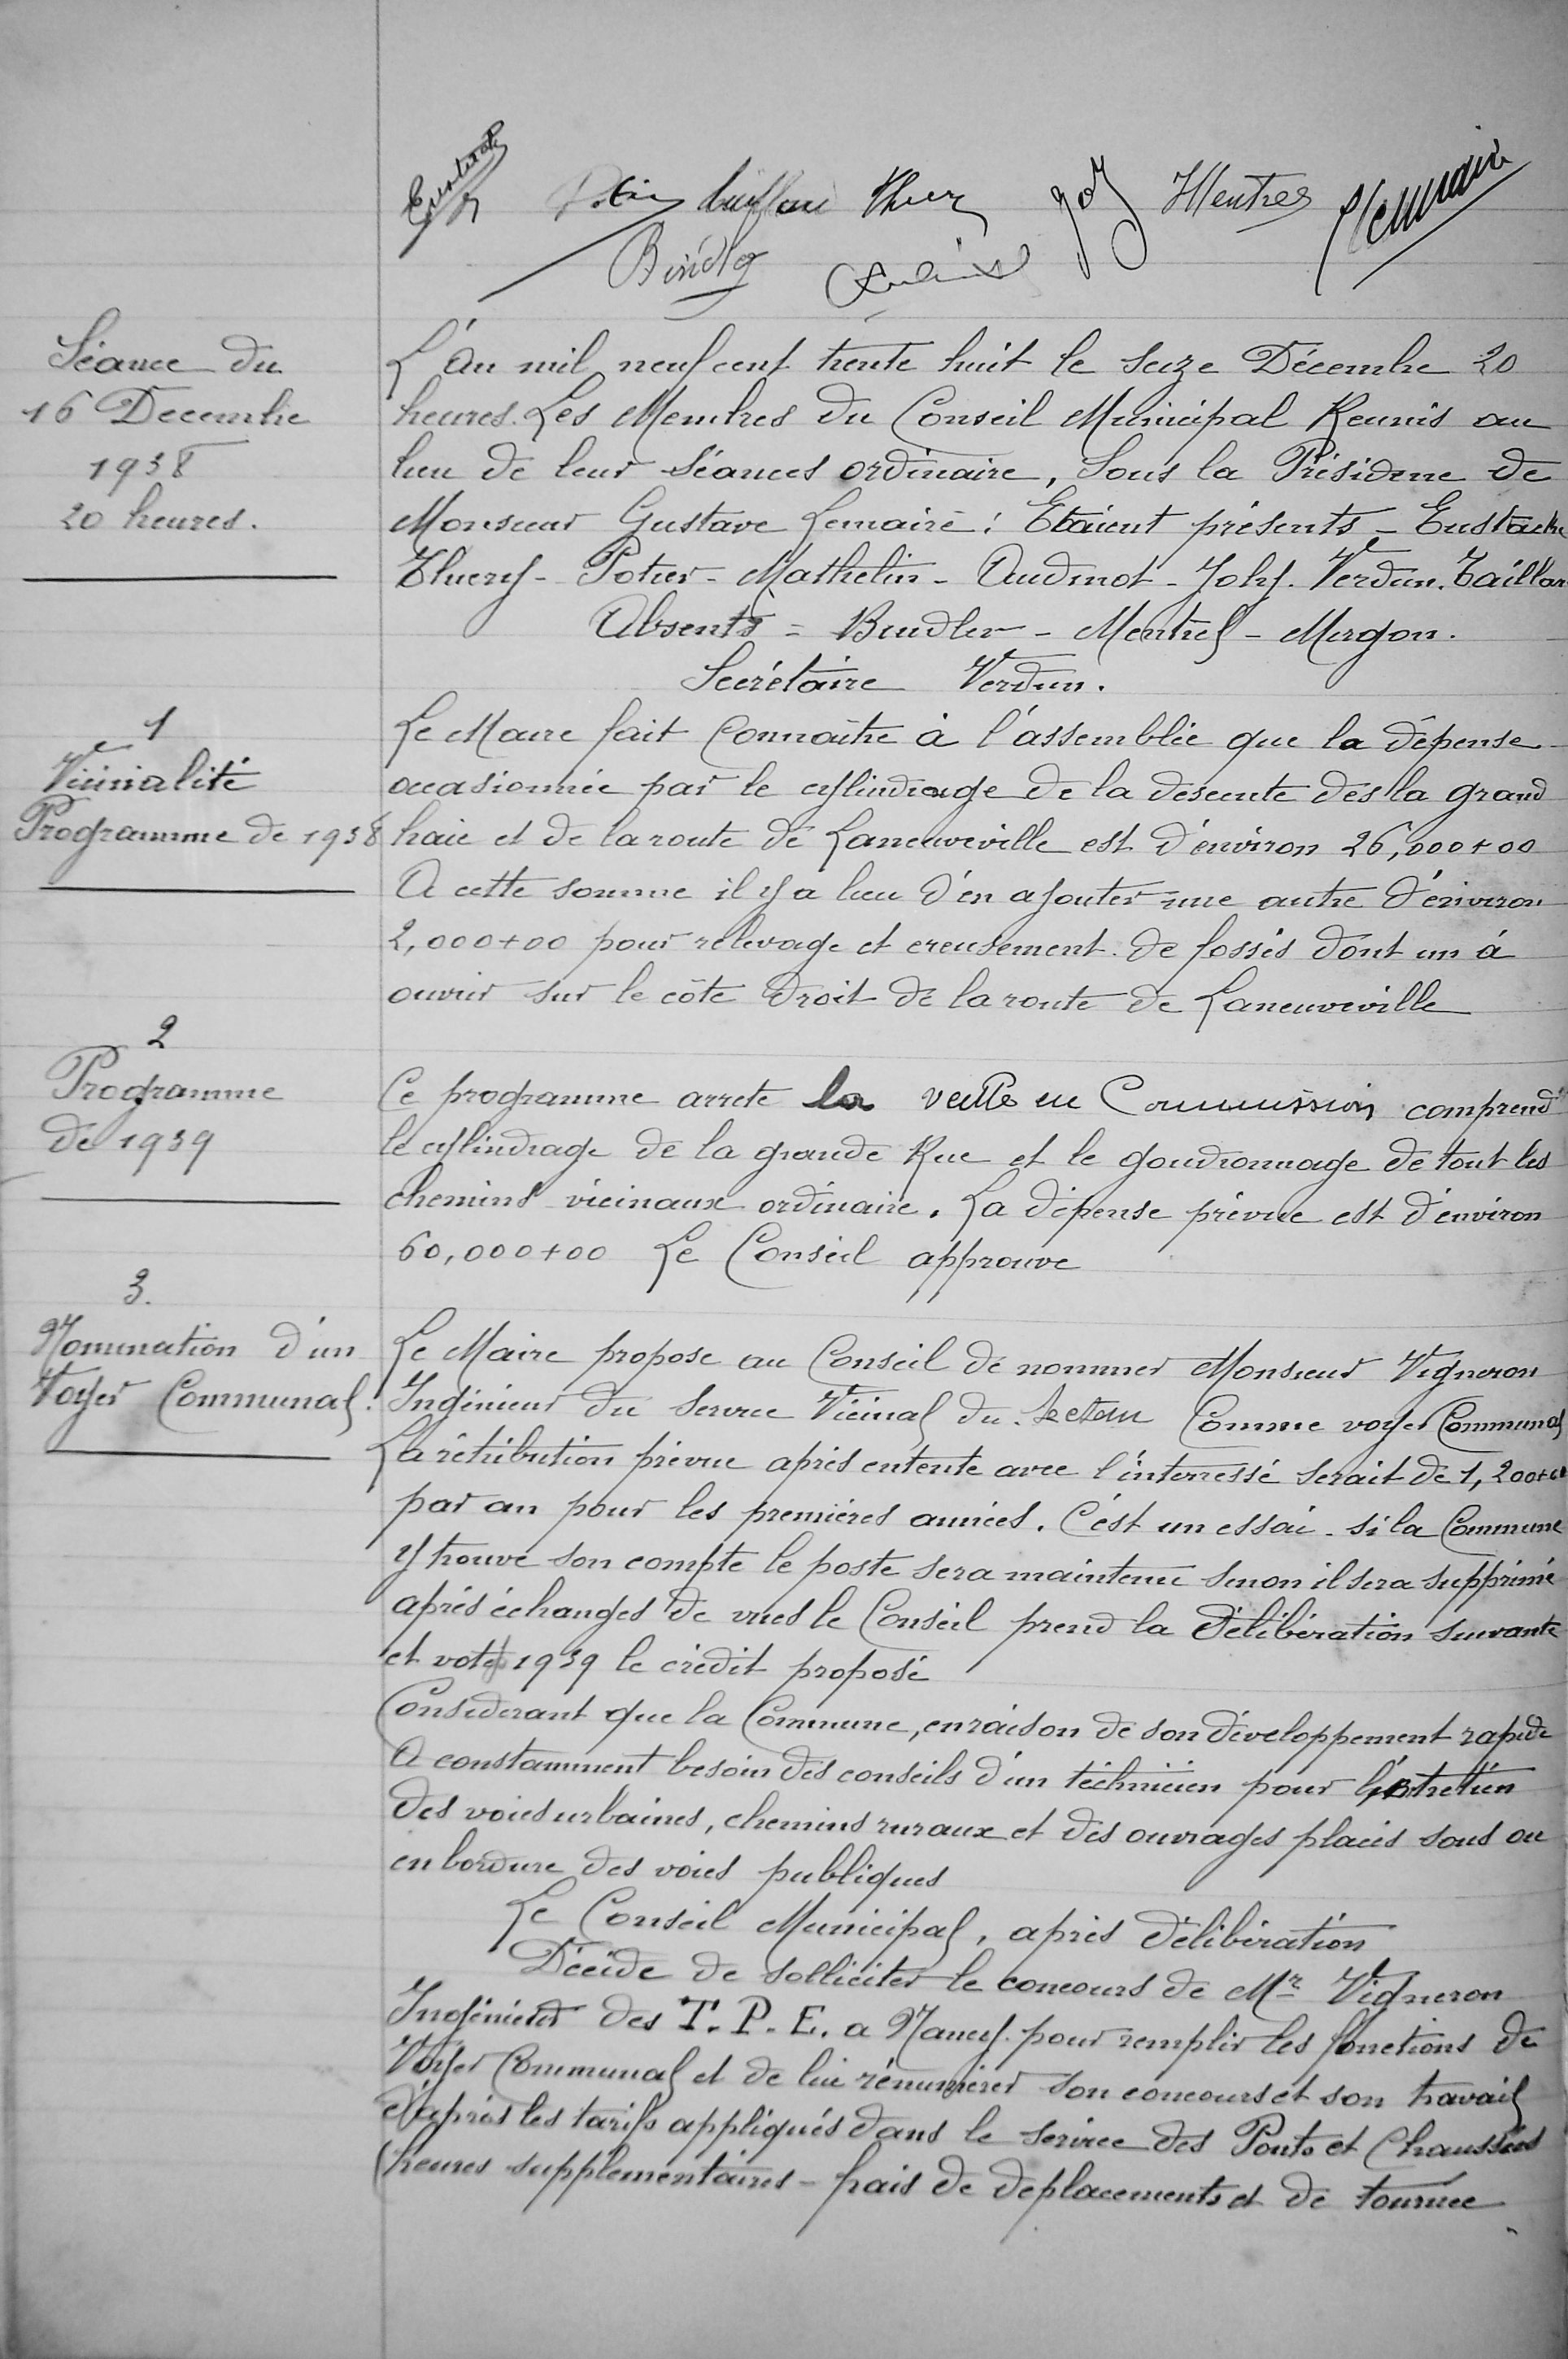 Eustache Potier Taillan Thiery Joly Mentrel GLemaire
Bindler
Séance du
16 Decembre
1938
20 heures.
L'An mil neuf cent trente huit le Seize Décembre 20
heures. Les Membres du Conseil Municipal Reunis au
lieu de leur Séances ordinaire, Sous la Présidence de
Monsieur Gustave Lemaire : Etaient présents - Eustache
Thiery - Potier - Mathelin - Audinot - Joly. Verdun. Taillan
Absents = Bindler - Mentrel - Morgon.
Secrétaire Verdun.
1
Vicinalité
Programme de 1938
Le Maire fait Connaître à l'assemblée que la dépense
occasionnée par le cylindrage de la descente des la grand
haie et de la route de Laneuveville est d'environ 26,000+00
A cette somme il y a lieu d'en ajouter une autre d'environ
2,000+00 pour relevage et creusement de fossés dont un à
ouvrir sur le côté droit de la route de Laneuveville
2
Programme
de 1939
Ce programme arrete la veille en Commission comprend
le cylindrage de la grande Rue et le goudronnage de tout les
chemins vicinaux ordinaire. La dépense prévue est d'environ
60,000+00 Le Conseil approuve
3.
Nomination d'un
Voyer Communal.
Le Maire propose au Conseil de nommer Monsieur Vigneron
Ingénieur du Service Vicinal du Secteur Comme voyer Communal
La rétribution prévue après entente avec l'interressé serait de 1,200+00
par an pour les premières années. C'est un essai - si la Commune
y trouve son compte le poste sera maintenu sinon il sera supprimé
après échanges de vues le Conseil prend la délibération suivante
et vote 1939 le crédit proposé
Considerant que la Commune, en raison de son développement rapide
A constamment besoin des conseils d'un téchnicien pour l'entretien
des voies urbaines, chemins ruraux et des ouvrages placés sous ou
en bordure des voies publiques
Le Conseil Municipal, après délibération
Décide de solliciter le concours de Mr Vigneron
Ingénieur des T.P.E. a Nancy pour remplir les fonctions de
Voyer Communal et de lui rénumérer son concours et son travail
d'après les tarifs appliqués dans le service des Ponts et Chaussées
(heures supplementaires - frais de deplacements et de tournee